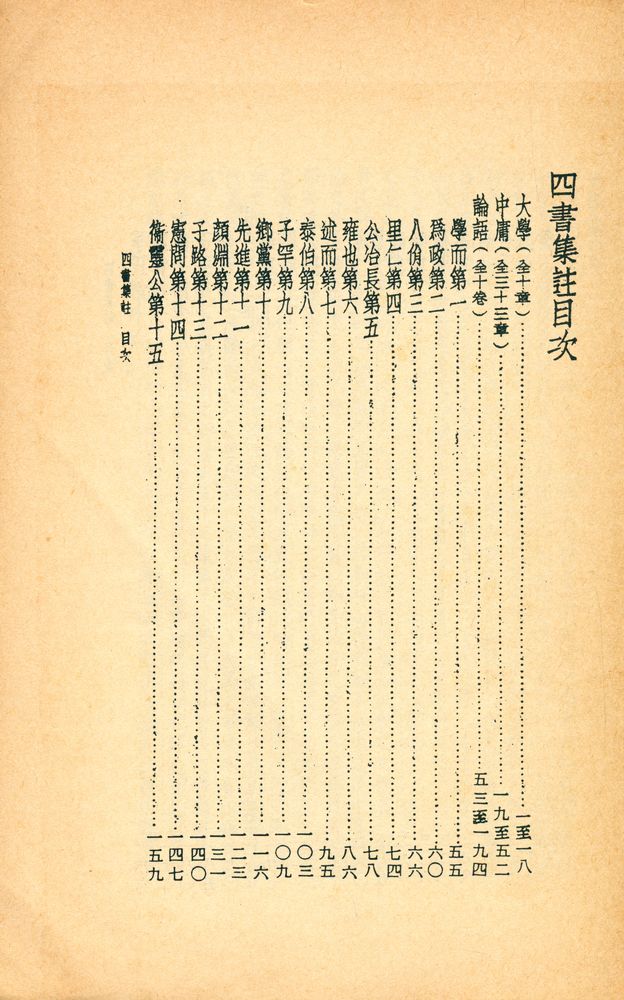 四書集註目次
大學(全十章)………一至一八
中庸(全三十三章)………一九至五二
論語(全十卷)………五三至一九四
學而第一………五五
爲政第二………六〇
八佾第三………六六
里仁第四………七四
公冶長第五………七八
雍也第六………八六
述而第七………九五
泰伯第八………一〇三
子罕第九………一〇九
鄉黨第十………一一六
先進第十一………一二三
顏淵第十二………一三一
子路第十三………一四〇
憲問第十四………一四七
衞靈公第十五………一五九
四書集註 目次